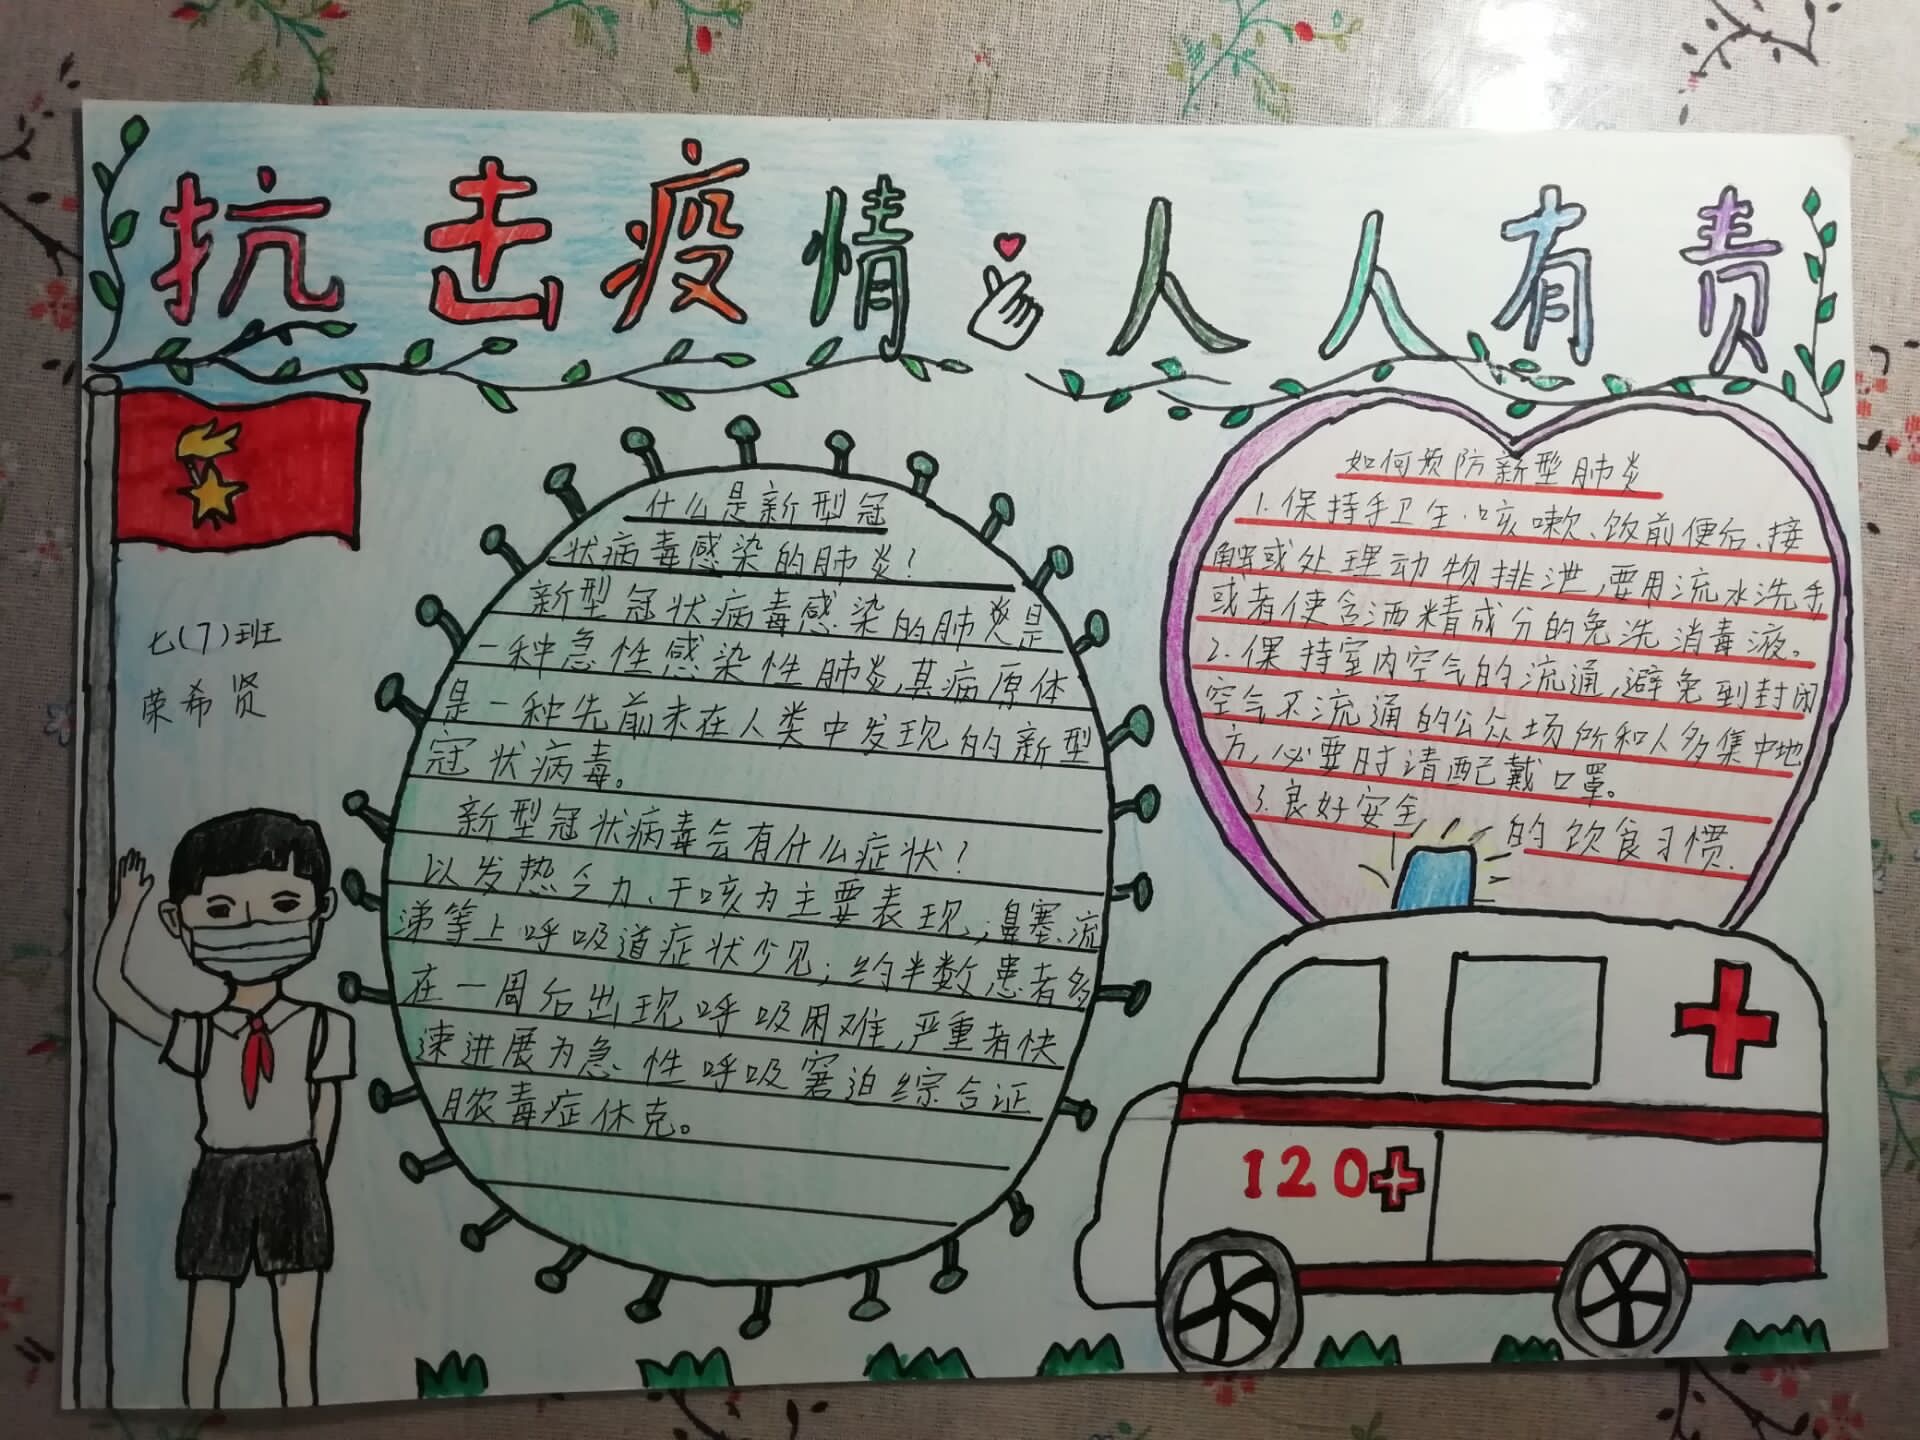 抗击疫情人人有责
七(7)班
荣希贤
什么是新型冠
状病毒感染的肺炎?
新型冠状病毒感染的肺炎是
一种急性感染性肺炎,其病原体
是一种先前未在人类中发现的新型
冠状病毒。
新型冠状病毒会有什么症状?
以发热乏力、干咳为主要表现,鼻塞、流
涕等上呼吸道症状少见;约半数患者多
在一周后出现呼吸困难,严重者快
速进展为急性呼吸窘迫综合证
脓毒症休克。
如何预防新型肺炎
1.保持手卫生.咳嗽、饭前便后、接
触或处理动物排泄,要用流水洗手
或者使含酒精成分的免洗消毒液。
2.保持室内空气的流通,避免到封闭
空气不流通的公众场所和人多集中地
方,必要时请配戴口罩。
3.良好安全的饮食习惯.
120